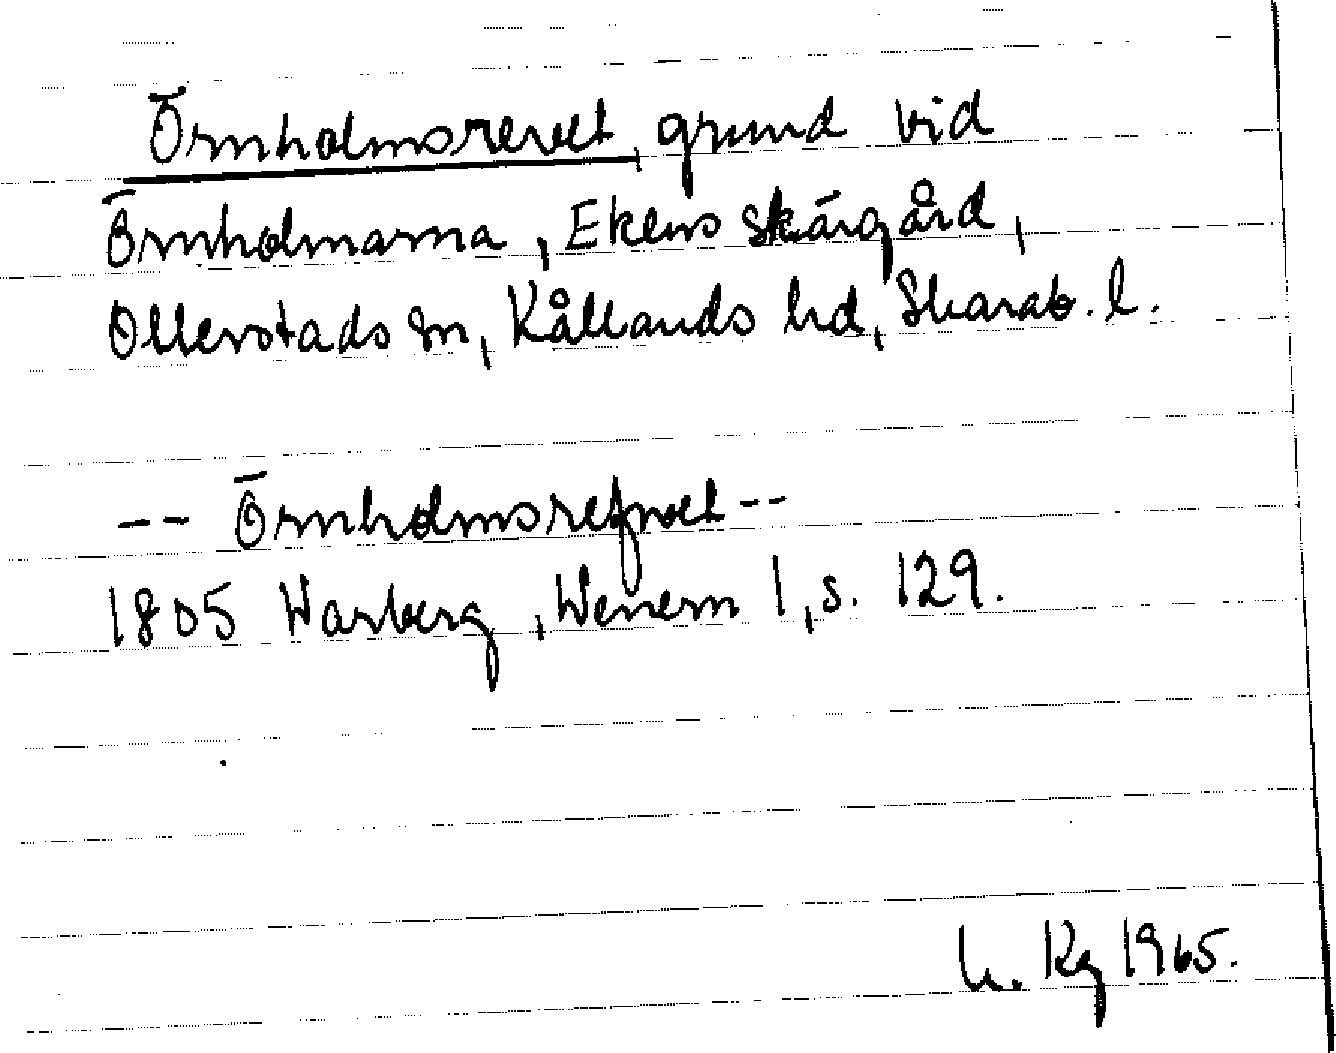 Örnholmsrevet, grund vid
Örnholmarna, Ekens skärgård,
Otterstads sn, Kållands hd, Skarab. l.
-- Örnholmsrefvet --
1805 Warberg, Wenern 1, s. 129.
Rg 1965.